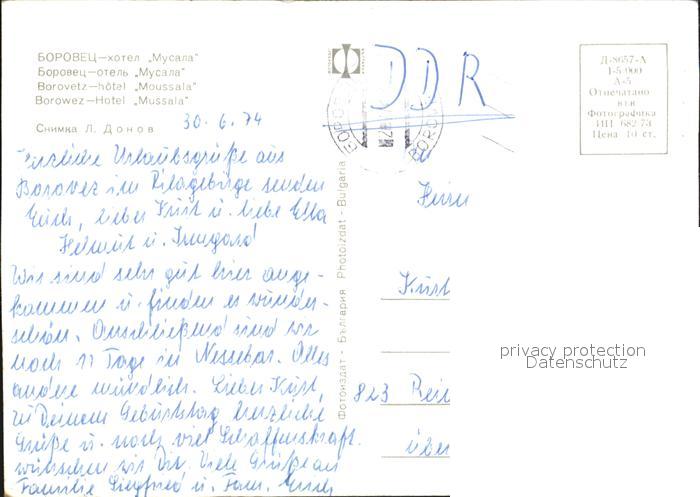 БОРОВЕЦ—хотел „Мусала"
Боровец—отель „Мусала"
Borovetz—hôtel „Moussala"
Borowez—Hotel „Mussala"
Снимка Л. Донов
30.6.74
Herzliche Urlaubsgrüße aus
Borovez im Rilagebirge senden
Euch, lieber Kurt u. liebe Ella
Helmut u. Irmgard
Wir sind sehr gut hier ange-
kommen u. finden es wunder-
schön. Anschließend sind wir
noch 11 Tage in Nessebar. Alles
andere mündlich. Lieber Kurt,
zu Deinem Geburtstag herzliche
Grüße u. noch viel Schaffenskraft
wünschen wir Dir. Viele Grüße an
Familie Siegfried u. Fam.
Фотоиздат - България Photoizdat - Bulgaria
DDR
Д-8657-А
1-5 000
А-5
Отпечатано
във
Фотографика
ИП 682-73
Цена 10 ст.
Herrn
Kurt
823
über
privacy protection
Datenschutz